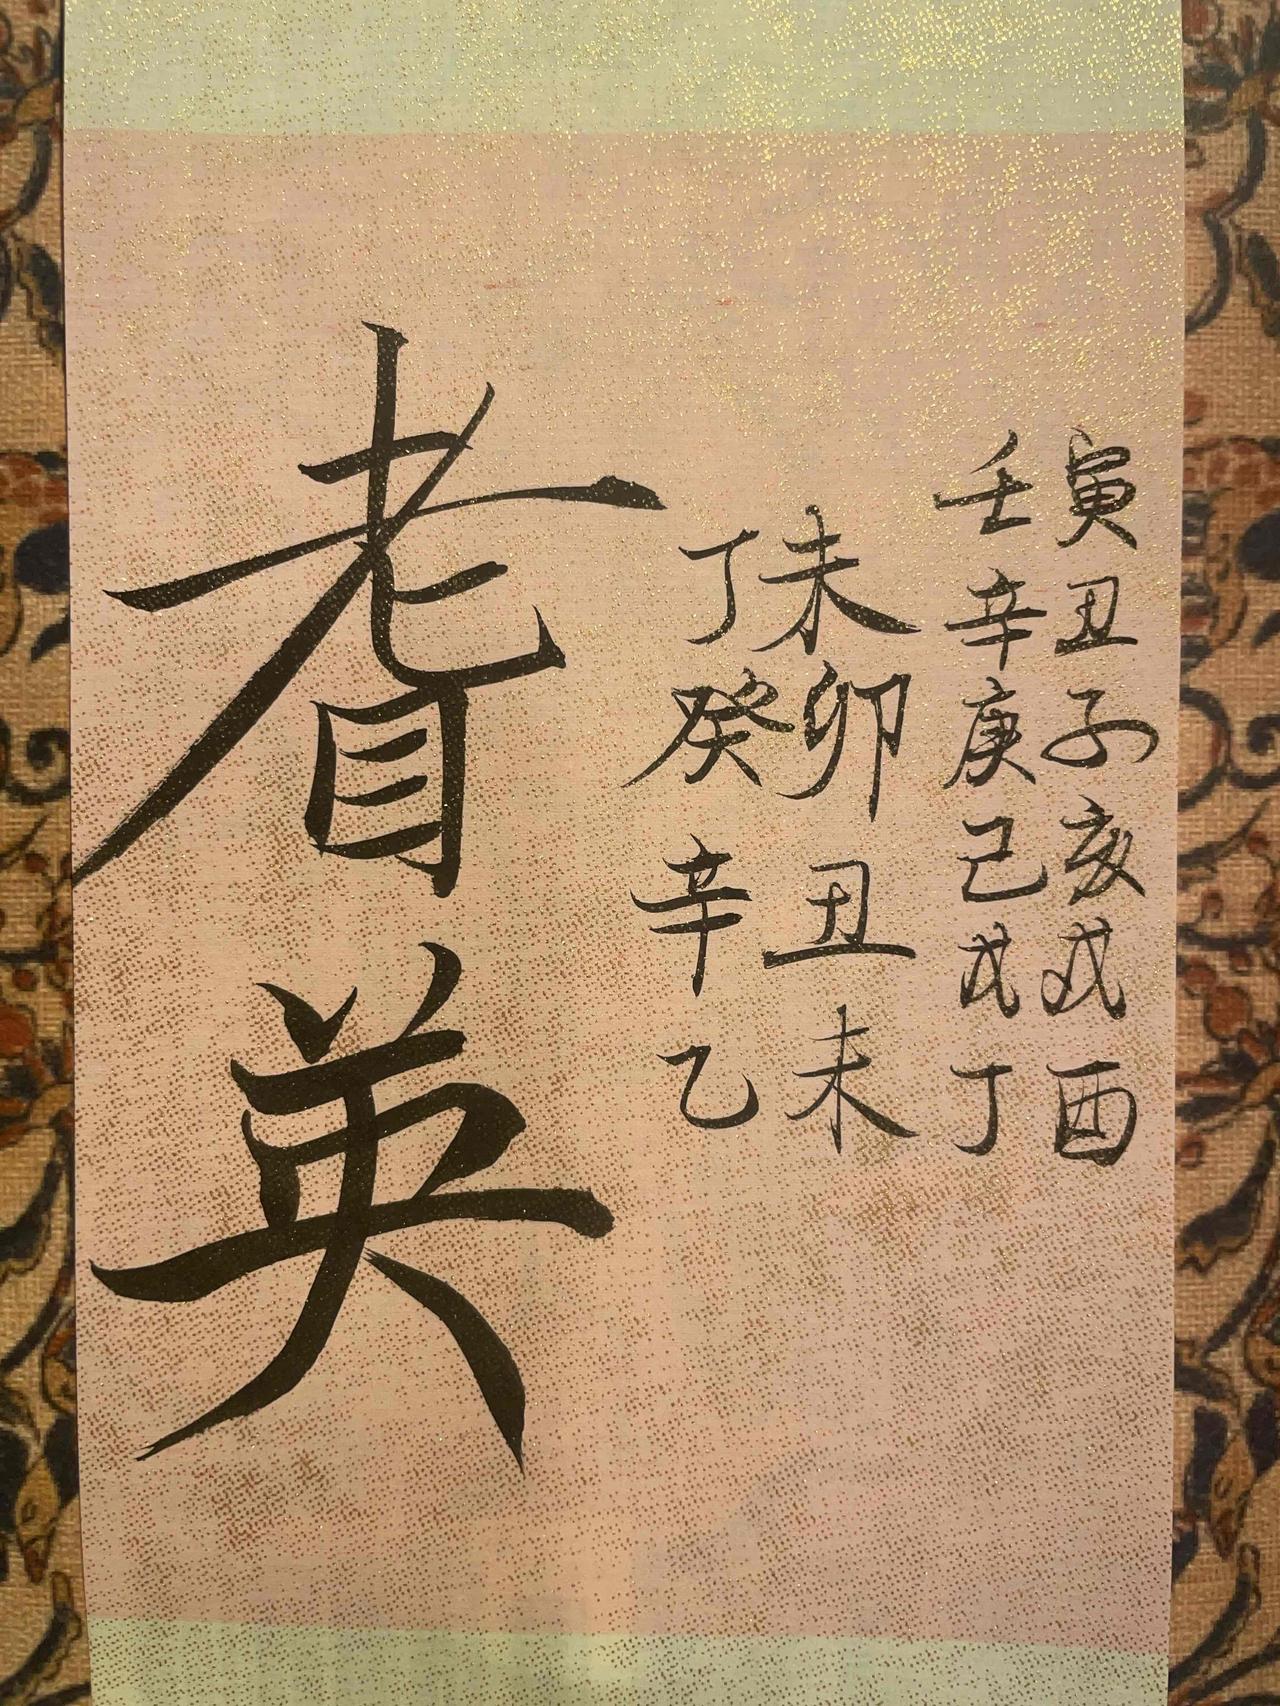 寅丑子亥戌酉
壬辛庚己戊丁
未卯丑未
丁癸辛乙
耆英